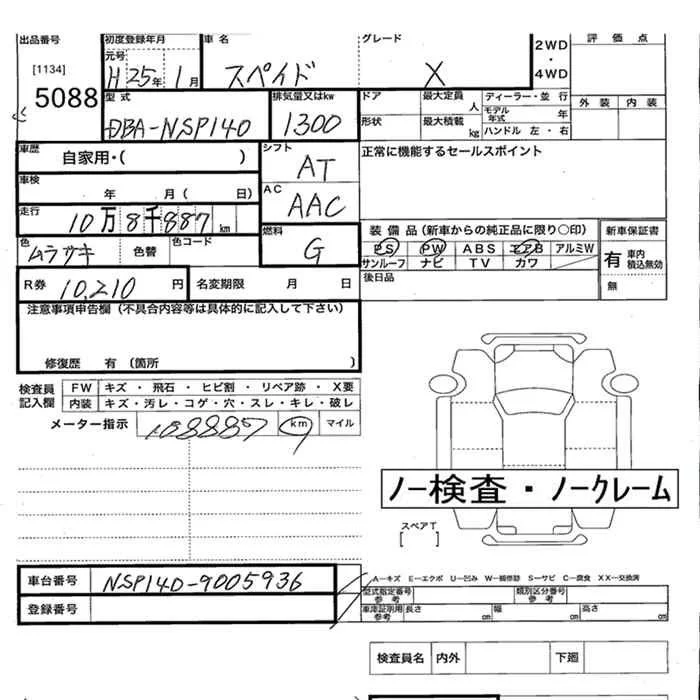 出品番号 初度登録年月 車名 グレード 2WD・4WD 評価点
[1134] 元号
5088 H 25年 1月 スペイド X
型式 排気量又はkw ドア 最大定員 人 ディーラー・並行 外装 内装
DBA-NSP140 1300 形状 最大積載 kg モデル年式 年
ハンドル 左・右
車歴 自家用・( ) シフト AT 正常に機能するセールスポイント
車検 年 月( 日) AC AAC
走行 10万8千887km 燃料 G 装備品(新車からの純正品に限り○印) 新車保証書
色 ムラサキ 色替 色コード PS PW ABS エアB アルミW 有 車内積込無効
サンルーフ ナビ TV カワ
R券 10,210円 名変期限 月 日 後日品 無
注意事項申告欄(不具合内容等は具体的に記入して下さい)
修復歴 有(箇所 )
検査員記入欄 FW キズ・飛石・ヒビ割・リペア跡・X要
内装 キズ・汚レ・コゲ・穴・スレ・キレ・破レ
メーター指示 108887 km マイル
ノー検査・ノークレーム
スペアT
[ ]
車台番号 NSP140-9005936 A-キズ E-エクボ U-凹み W-補修跡 S-サビ C-腐食 XX-交換済
登録番号 型式指定番号 参考 類別区分番号 参考
車庫証明用 参考 長さ cm 幅 cm 高さ cm
検査員名 内外 下廻